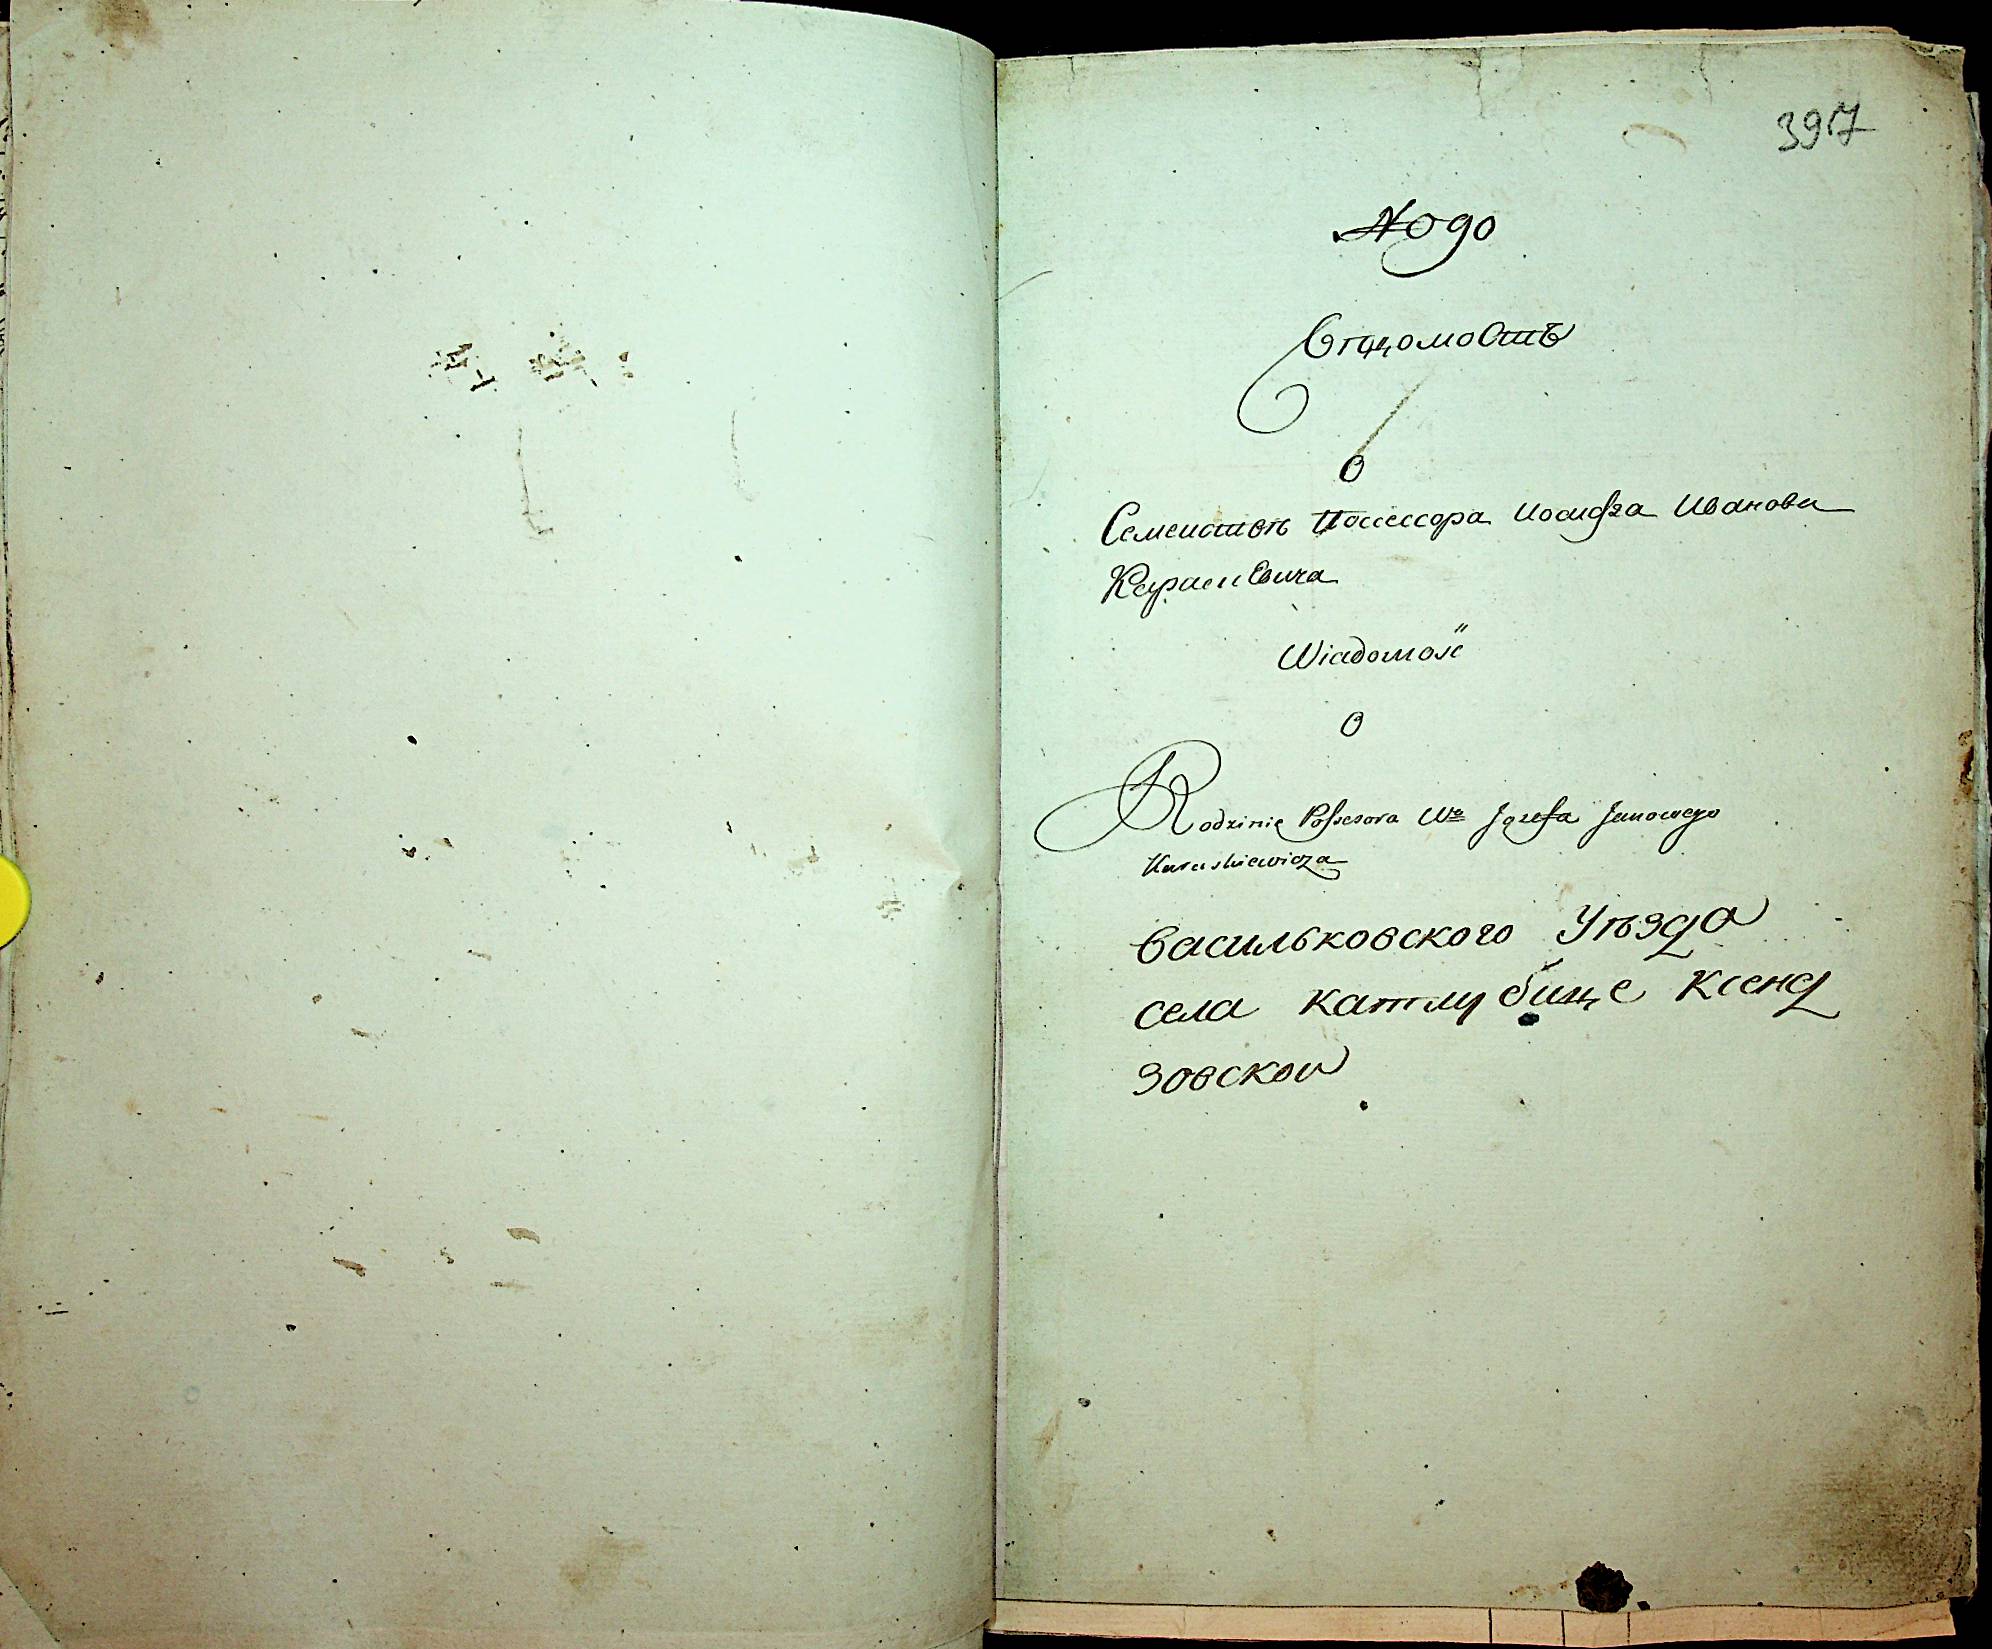 397
№ 90
Вѣдомость
О
Семеистве Посессора Иосифа Иванова
Карасиевича
Wiadomość
O
Rodzinie Possesora Wo Jozefa Janowego
Karaskiewicza
Васильковского Уѣзда
села Катлубице Ксенд
зовскои